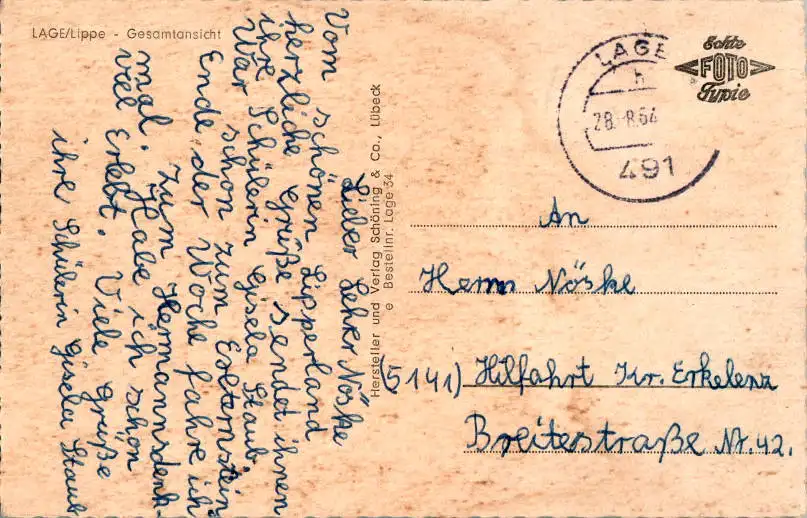 LAGE/Lippe - Gesamtansicht
Lieber Lehrer Nöske
Vom schönen Lipperland
herzliche Grüße sendet ihnen
ihre Schülerin Gisela Staub.
War schon zum Externstein
Ende der Woche fahre ich
zum Hermannsdenk-
mal. Habe ich schön
viel Erlebt. Viele Grüße
ihre Schülerin Gisela Staub
Hersteller und Verlag Schöning & Co., Lübeck
e Bestellnr. Lage 34
LAGE
h
28.-8.64
491
Echte
FOTO
Typie
An
Herrn Nöske
(5141) Hilfahrt Kr. Erkelenz
Breitestraße Nr. 42.